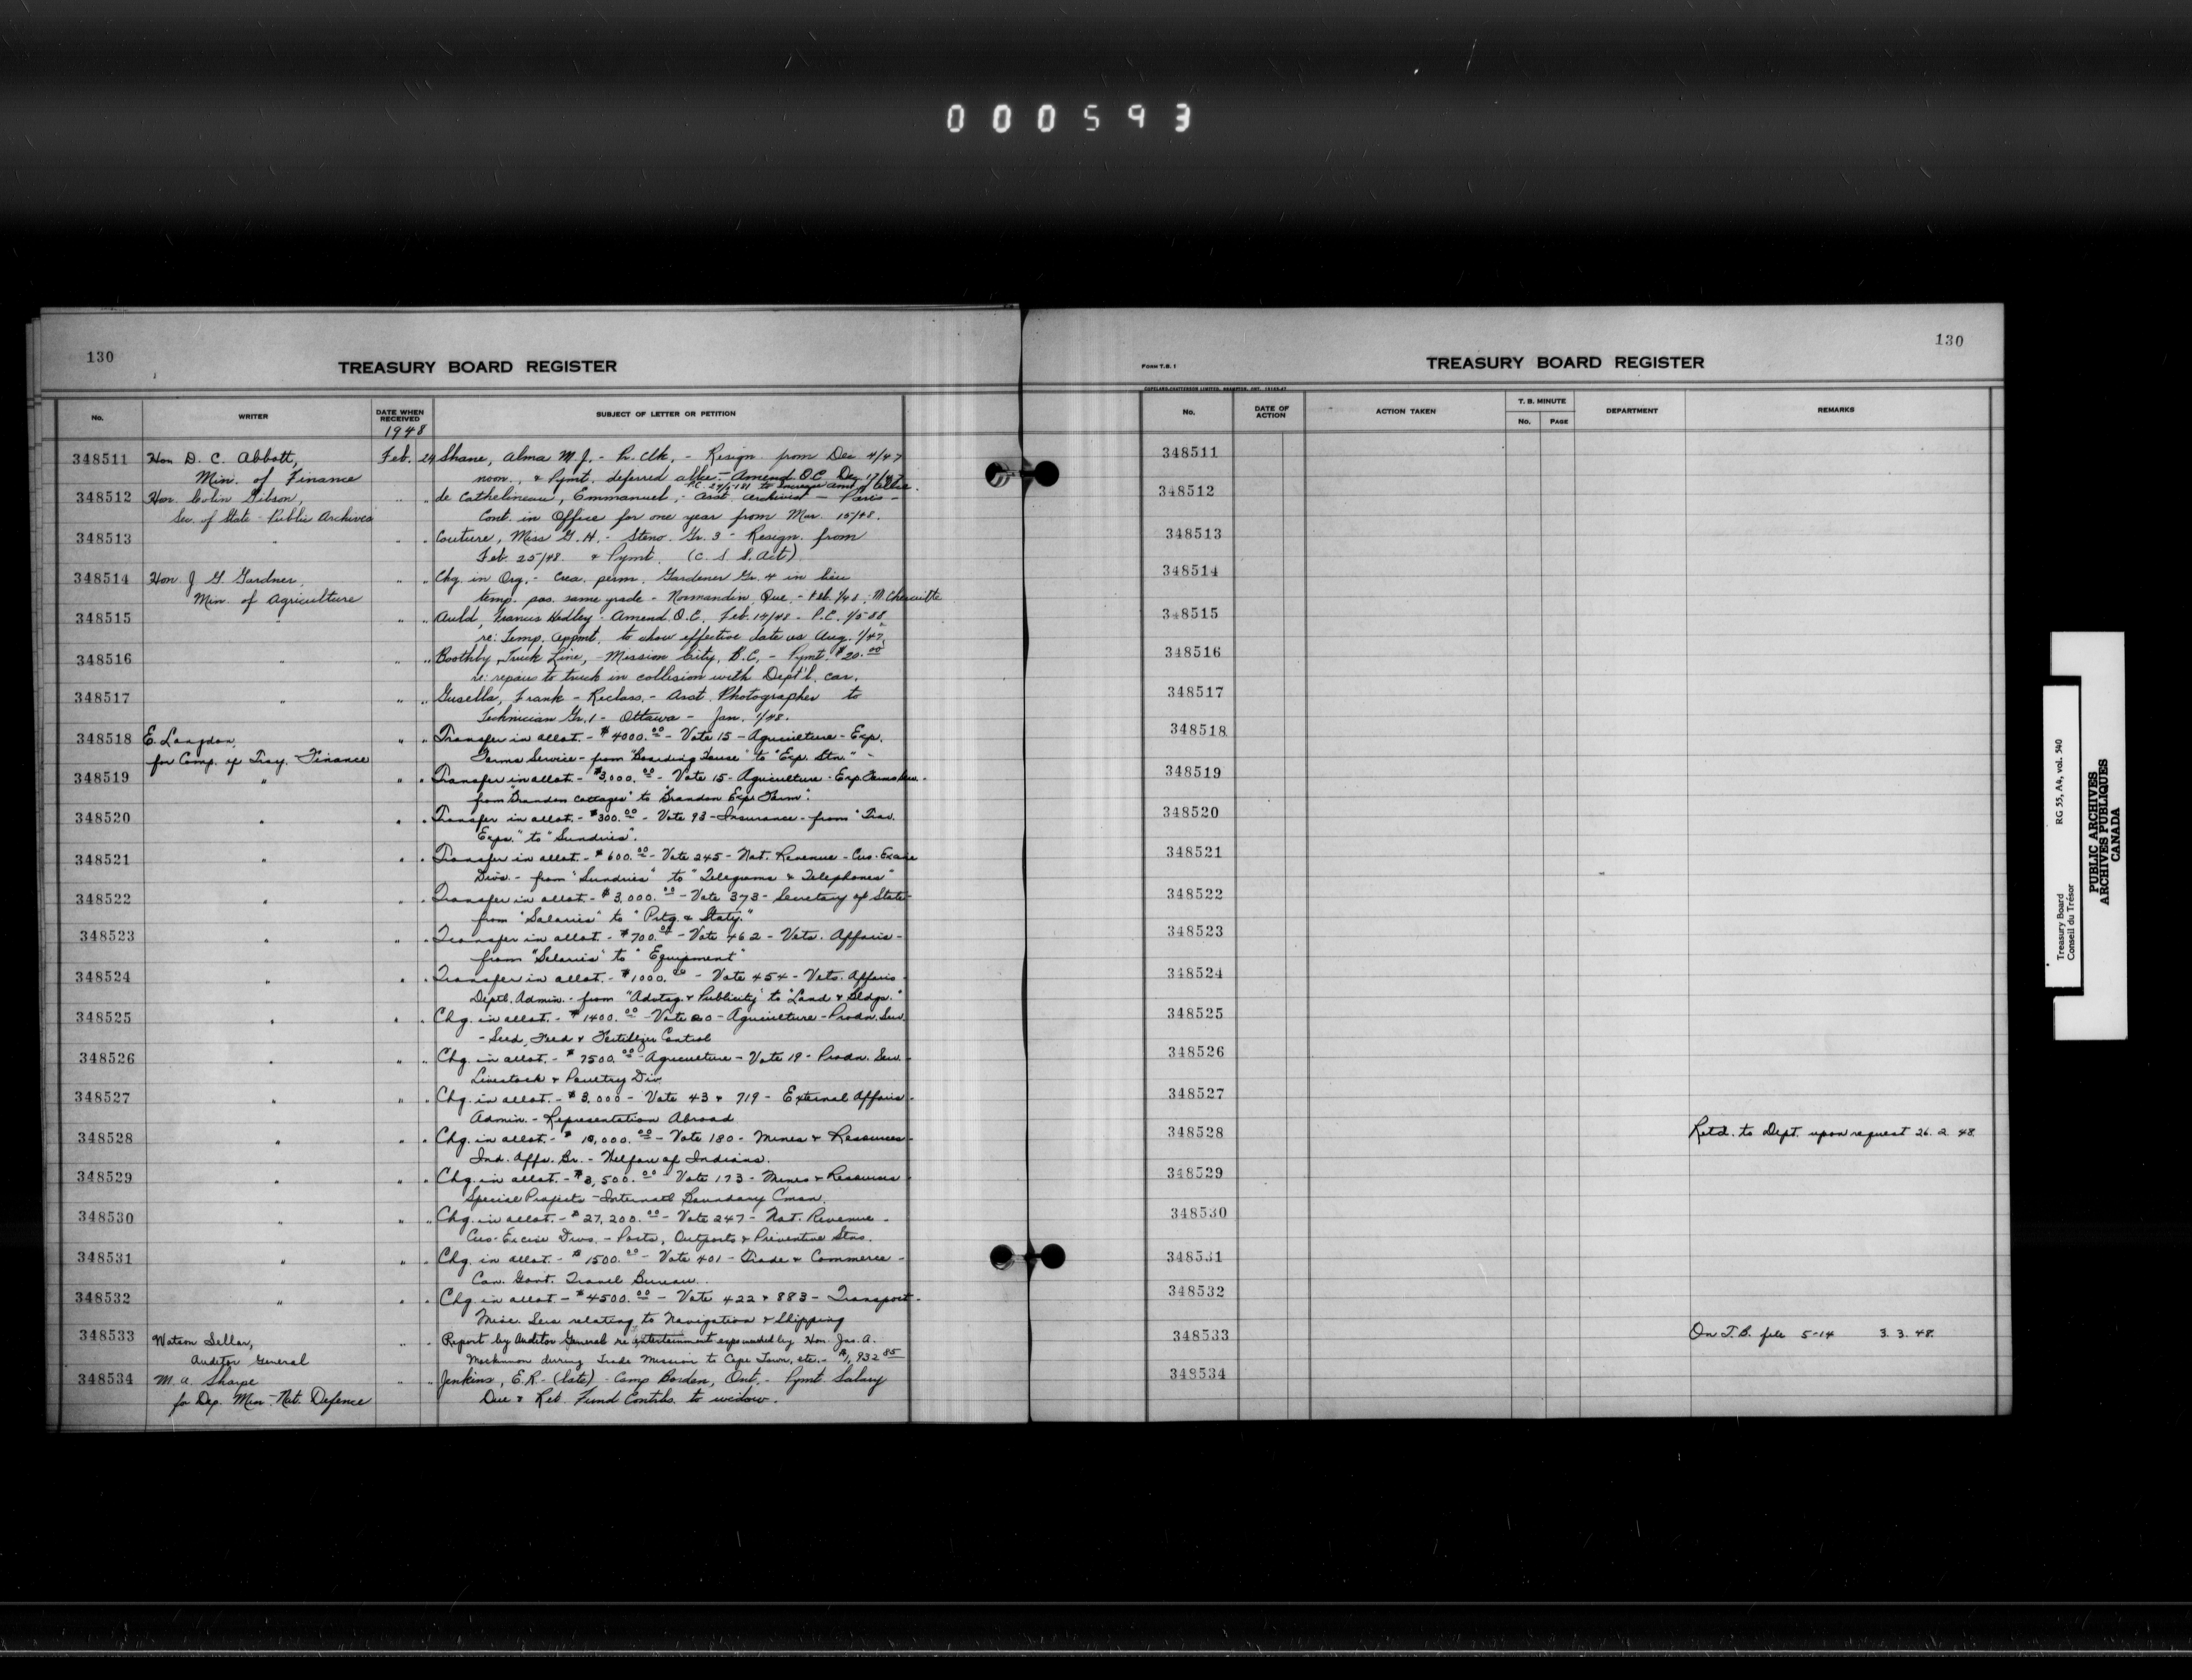 000593
130
TREASURY BOARD REGISTER
No. WRITER DATE WHEN RECEIVED SUBJECT OF LETTER OR PETITION
1948
348511 Hon D. C. Abbott, Feb. 24 Shane, Alma M. J. - Pr. Clk, - Resign. from Dec 4/47
Min. of Finance noon, & Pymt. deferred allce - Amend O.C. Dec 17/47
P.C. 27/5181 to increase amt of allce.
348512 Hon. Colin Gibson, " " de Cathelineau, Emmanuel, - Asst. Archivist - Paris -
Sec. of State - Public Archives Cont. in Office for one year from Mar. 15/48.
348513 " " " Couture, Miss G. H. - Steno. Gr. 3 - Resign. from
Feb. 25/48 & Pymt. (C. S. S. Act)
348514 Hon. J. G. Gardner, " " Chg in Org. - Crea. perm. Gardener Gr. 4 in lieu
Min. of Agriculture temp. pos. same grade - Normandin, Que. - Feb. 1/48. M.
348515 " " " Auld, Francis Hedley - Amend. O.C. Feb. 14/48 - P.C. 1/588
re: Temp. appmt. to show effective date as Aug. 1/47.
348516 " " " Boothby, Truck Line, - Mission City, B.C, - Pymt. $20.00
re: repairs to truck in collision with Dept'l. car.
348517 " " " Gusella, Frank - Reclass. - Asst. Photographer to
Technician Gr. 1 - Ottawa - Jan. 1/48.
348518 E. Langdon, " " Transfer in allot. - $4000.00 - Vote 15 - Agriculture - Exp.
for Comp. of Trsy. - Finance Farms Service - from "Boarding House" to "Exp. Stn." -
348519 " " " Transfer in allot. - $3,000.00 - Vote 15 - Agriculture - Exp. Farms Serv. -
from "Brandon Cottages" to "Brandon Exp. Farm".
348520 " " " Transfer in allot. - $300.00 - Vote 93 - Insurance - from "Trav.
Exps." to "Sundries".
348521 " " " Transfer in allot. - $600.00 - Vote 245 - Nat. Revenue - Cus-Excise
Divs. - from "Sundries" to "Telegrams & Telephones"
348522 " " " Transfer in allot. - $3,000.00 - Vote 373 - Secretary of State -
from "Salaries" to "Prtg. & Staty."
348523 " " " Transfer in allot. - $700.00 - Vote 462 - Vets. Affairs -
from "Salaries" to "Equipment"
348524 " " " Transfer in allot. - $1000.00 - Vote 454 - Vets. Affairs
Deptl. Admin. - from "Advtsg. & Publicity" to "Land & Bldgs."
348525 " " " Chg. in allot. - $1400.00 - Vote 20 - Agriculture - Prodn. Serv.
- Seed, Feed & Fertilizer Control
348526 " " " Chg. in allot. - $7500.00 - Agriculture - Vote 19 - Prodn. Serv. -
Livestock & Poultry Div.
348527 " " " Chg. in allot. - $3,000 - Vote 43 & 719 - External Affairs -
Admin. - Representation Abroad
348528 " " " Chg. in allot. - $10,000.00 - Vote 180 - Mines & Resources -
Ind. Affs. Br. - Welfare of Indians.
348529 " " " Chg. in allot. - $3,500.00 - Vote 173 - Mines & Resources -
Special Projects - Internatl Boundary Cmsn.
348530 " " " Chg. in allot. - $27,200.00 - Vote 247 - Nat. Revenue -
Cus-Excise Divs. - Ports, Outports & Preventive Stns.
348531 " " " Chg. in allot. - $1500.00 - Vote 401 - Trade & Commerce -
Can. Govt. Travel Bureau.
348532 " " " Chg in allot - $4500.00 - Vote 422 & 883 - Transport -
Misc. Serv relating to Navigation & Shipping
348533 Watson Sellar, " " Report by Auditor General re entertainment exps incurred by Hon. Jas. A.
Auditor General MacKinnon during Trade Mission to Cape Town, etc. - $1,932.85
348534 M. A. Sharpe " " Jenkins, E.R. - (late) - Camp Borden, Ont. - Pymt. Salary
for Dep. Min. - Nat. Defence Due & Ret. Fund Contrbs. to widow.
130
FORM T.B. 1
TREASURY BOARD REGISTER
No. DATE OF ACTION ACTION TAKEN T. B. MINUTE No. PAGE DEPARTMENT REMARKS
348511
348512
348513
348514
348515
348516
348517
348518
348519
348520
348521
348522
348523
348524
348525
348526
348527
348528 Retd. to Dept. upon request 26. 2. 48.
348529
348530
348531
348532
348533 On T.B. file 5-14 3. 3. 48.
348534
Treasury Board RG 55, A4, vol. 540
Conseil du Trésor
PUBLIC ARCHIVES
ARCHIVES PUBLIQUES
CANADA